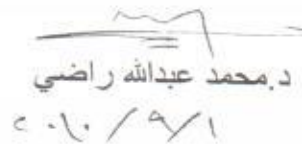 د.محمد عبدالله راضي
٢٠١٠/٩/١